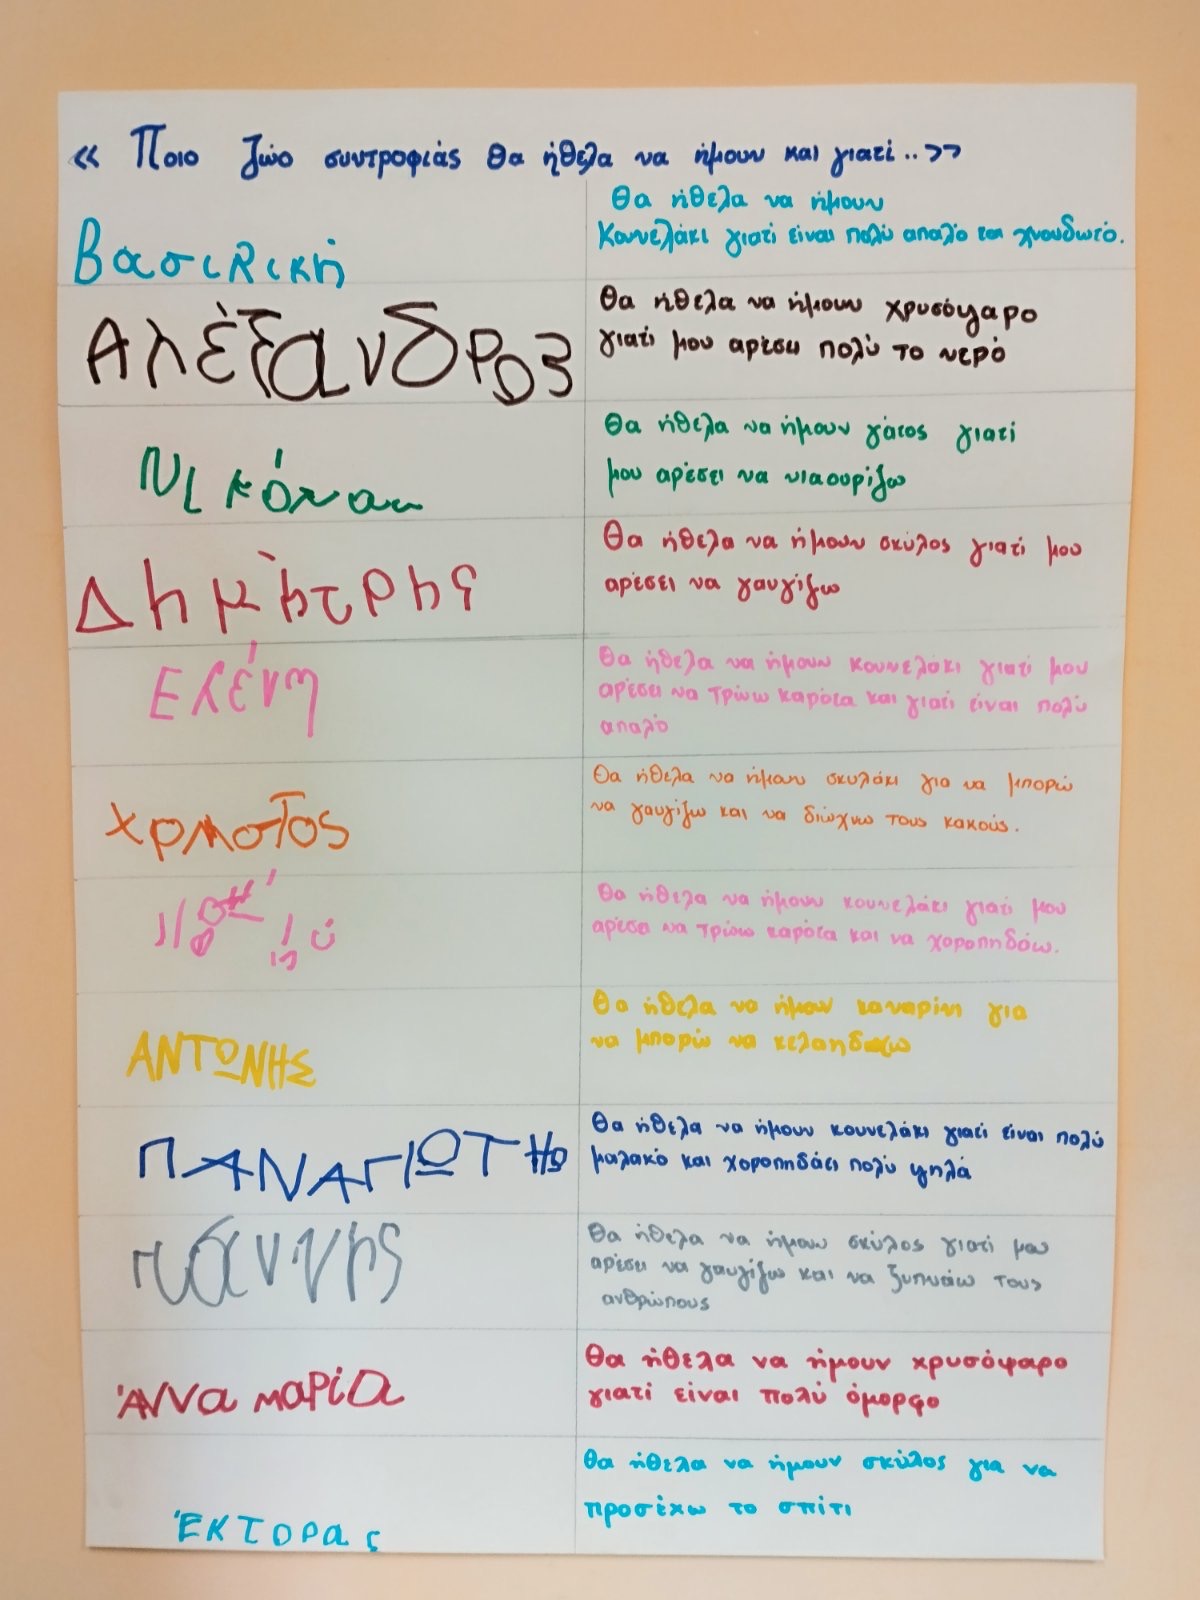 « Ποιο ζώο συντροφιάς θα ήθελα να ήμουν και γιατί..»
Βασιλική
Θα ήθελα να ήμουν
κουνελάκι γιατί είναι πολύ απαλό και χνουδωτό.
Αλέξανδρος
Θα ήθελα να ήμουν χρυσόψαρο
γιατί μου αρέσει πολύ το νερό
Θα ήθελα να ήμουν γάτος γιατί
μου αρέσει να νιαουρίζω
Δημήτρης
Θα ήθελα να ήμουν σκύλος γιατί μου
αρέσει να γαυγίζω
Ελένη
Θα ήθελα να ήμουν κουνελάκι γιατί μου
αρέσει να τρώω καρότα και γιατί είναι πολύ
απαλό
Χρηστος
Θα ήθελα να ήμουν σκυλάκι για να μπορώ
να γαυγίζω και να διώχνω τους κακούς.
Θα ήθελα να ήμουν κουνελάκι γιατί μου
αρέσει να τρώω καρότα και να χοροπηδάω.
ΑΝΤΩΝΗΣ
Θα ήθελα να ήμουν καναρίνι για
να μπορώ να κελαηδάω
ΠΑΝΑΓΙΩΤΗΣ
Θα ήθελα να ήμουν κουνελάκι γιατί είναι πολύ
μαλακό και χοροπηδάει πολύ ψηλά
Θα ήθελα να ήμουν σκύλος γιατί μου
αρέσει να γαυγίζω και να ξυπνάω τους
ανθρώπους
Άννα μαρία
Θα ήθελα να ήμουν χρυσόψαρο
γιατί είναι πολύ όμορφο
ΈΚΤΟΡας
Θα ήθελα να ήμουν σκύλος για να
προσέχω το σπίτι